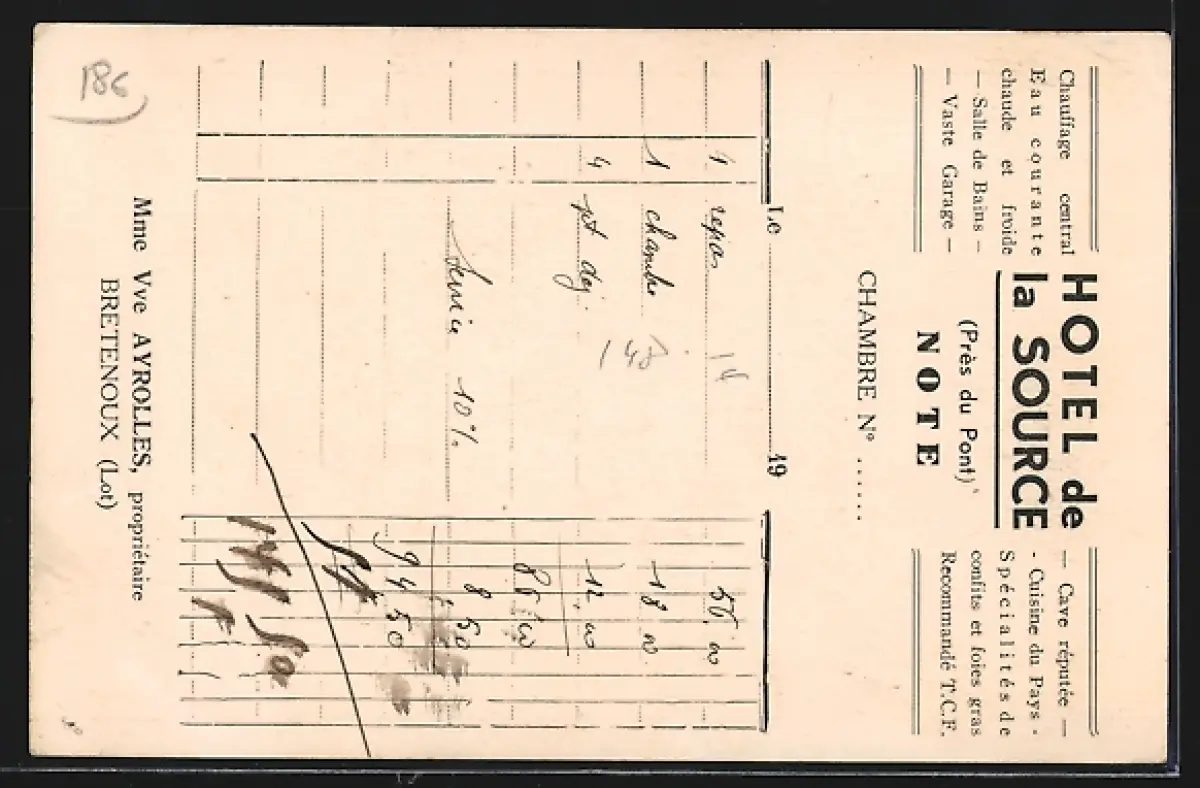 Chauffage central
Eau courante
chaude et froide
— Salle de Bains —
— Vaste Garage —
HOTEL de
la SOURCE
(Près du Pont)
NOTE
— Cave réputée —
- Cuisine du Pays -
Spécialités de
confits et foies gras
Recommandé T.C.F.
CHAMBRE N° .......
Le 19
4 repas 14 56.00
1 chambre 18 00
148
4 pt dej. 12.00
86.00
Service 10% 8 60
94 50
Mme Vve AYROLLES, propriétaire
BRETENOUX (Lot)
186